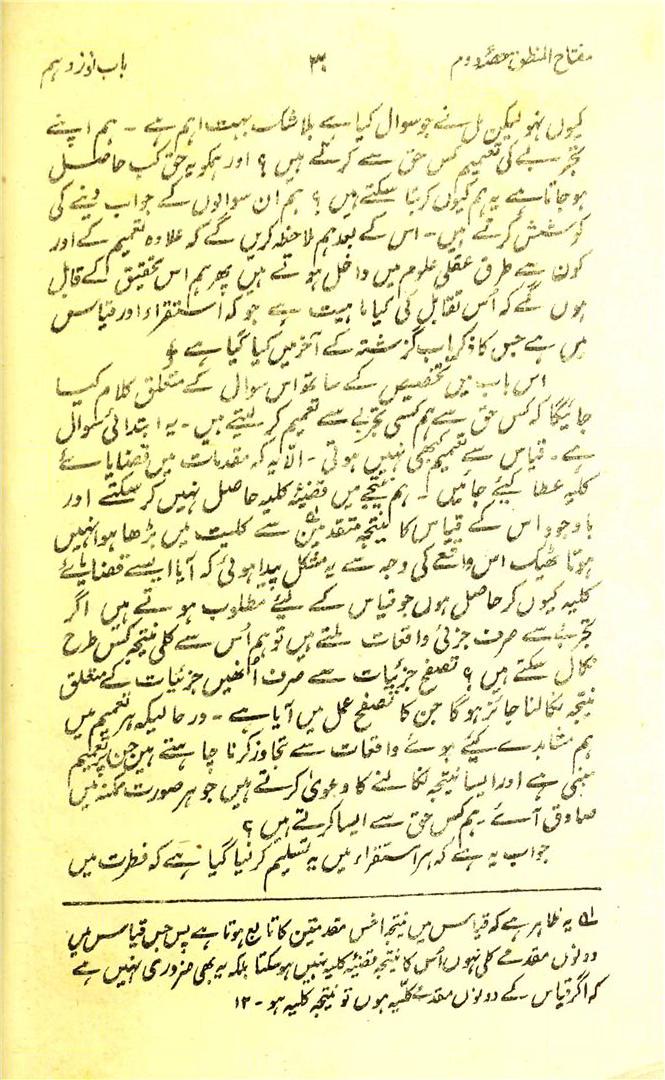 مفتاح المنطق حصۂ دوم ۳۰ باب نوزدہم
کیوں نہو لیکن مل نے جو سوال کیا ہے بلا شک بہت اہم ہے ۔ ہم اپنے
تجربے کی تعمیم کس حق سے کرتے ہیں ؟ اور ہمکو یہ حق کب حاصل
ہو جاتا ہے یہ ہم کیوں کر بتا سکتے ہیں ؟ ہم ان سوالوں کے جواب دینے کی
کوشش کرتے ہیں ۔ اس کے بعد ہم ملاحظہ کریں گے کہ علاوہ تعمیم کے اور
کون سے طرق عقلی علوم میں داخل ہوتے ہیں پھر ہم اس تحقیق کے قابل
ہوں گے کہ اُس تقابل کی کیا ماہیت ہے جو کہ استقراء اور قیاس
میں ہے جس کا ذکر باب گزشتہ کے آخر میں کیا گیا ہے
اس باب میں تخصیص کے ساتھ اس سوال کے متعلق کلام کیا
جائیگا کہ کس حق سے ہم کسی تجربے سے تعمیم کر لیتے ہیں ۔ یہ ابتدائی سوال
ہے ۔ قیاس سے تعمیم کبھی نہیں ہوتی ۔ الا یہ کہ مقدمات میں قضایائے
کلیہ عطا کیئے جائیں ۔ ہم نتیجے میں قضیۂ کلیہ حاصل نہیں کر سکتے اور
باوجود اس کے قیاس کا نتیجہ مقدمتین۱؎ سے کلیت میں بڑھا ہوا نہیں
ہوتا ٹھیک اس واقعے کی وجہ سے یہ مشکل پیدا ہوئی کہ آیا ایسے قضایائے
کلیہ کیوں کر حاصل ہوں جو قیاس کے لیئے مطلوب ہوتے ہیں اگر
تجربے سے صرف جزئی واقعات ملتے ہیں تو ہم اُس سے کلی نتیجہ کس طرح
نکال سکتے ہیں ؟ تصفح جزئیات سے صرف اُنھیں جزئیات کے متعلق
نتیجہ نکالنا جائز ہوگا جن کا تصفح عمل میں آیا ہے ۔ درحالیکہ ہر تعمیم میں
ہم مشاہدے کیئے ہوئے واقعات سے تجاوز کرنا چاہتے ہیں جن پر تعمیم
مبنی ہے اور ایسا نتیجہ نکالنے کا دعویٰ کرتے ہیں جو ہر صورت ممکنہ میں
صادق آئے ۔ ہم کس حق سے ایسا کرتے ہیں ؟
جواب یہ ہے کہ ہر استقراء میں یہ تسلیم کر لیا گیا ہے کہ فطرت میں
۱؎ یہ ظاہر ہے کہ قیاس میں نتیجہ اخس مقدمتین کا تابع ہوتا ہے پس جس قیاس میں
دونوں مقدمے کلی نہوں اُس کا نتیجہ قضیۂ کلیہ نہیں ہو سکتا بلکہ یہ بھی ضروری نہیں ہے
کہ اگر قیاس کے دونوں مقدمے کلیّہ ہوں تو نتیجہ کلیہ ہو ۔ ۱۲